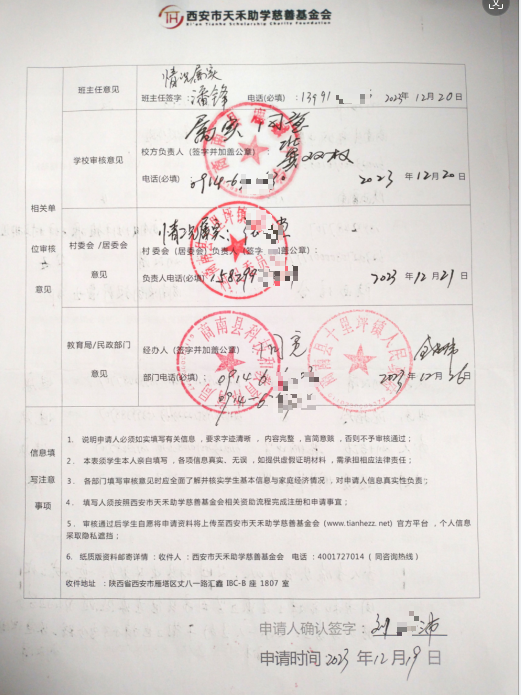 西安市天禾助学慈善基金会
Xi'an Tianhe Scholarship Charity Foundation
相关单位审核意见
班主任意见
情况属实
班主任签字：潘锋 电话(必填)：13991 2023年12月20日
学校审核意见
属实 同意
校方负责人（签字并加盖公章）
电话(必填)：0914-6 2023年12月20日
村委会/居委会意见
情况属实
村委会（居委会）负责人（签字 加盖公章）：
负责人电话(必填)：158299 2023年12月21日
教育局/民政部门意见
经办人（签字并加盖公章）
部门电话(必填)：0914-6 2023年12月26日
0914-6
商南县十里坪镇人民政府
信息填写注意事项
1. 说明申请人必须如实填写有关信息，要求字迹清晰，内容完整，言简意赅，否则不予审核通过；
2. 本表须学生本人亲自填写，各项信息真实、无误，如提供虚假证明材料，需承担相应法律责任；
3. 各部门填写审核意见时应全面了解并核实学生基本信息与家庭经济情况，对申请人信息真实性负责；
4. 填写人须按照西安市天禾助学慈善基金会相关资助流程完成注册和申请事宜；
5. 审核通过后学生自愿将申请资料将上传至西安市天禾助学慈善基金会 (www.tianhezz.net) 官方平台，个人信息
采取隐私遮挡；
6. 纸质版资料邮寄详情：收件人：西安市天禾助学慈善基金会 电话：4001727014（同咨询热线）
收件地址：陕西省西安市雁塔区丈八一路汇鑫 IBC-B 座 1807 室
申请人确认签字：刘
申请时间 2023年12月19日